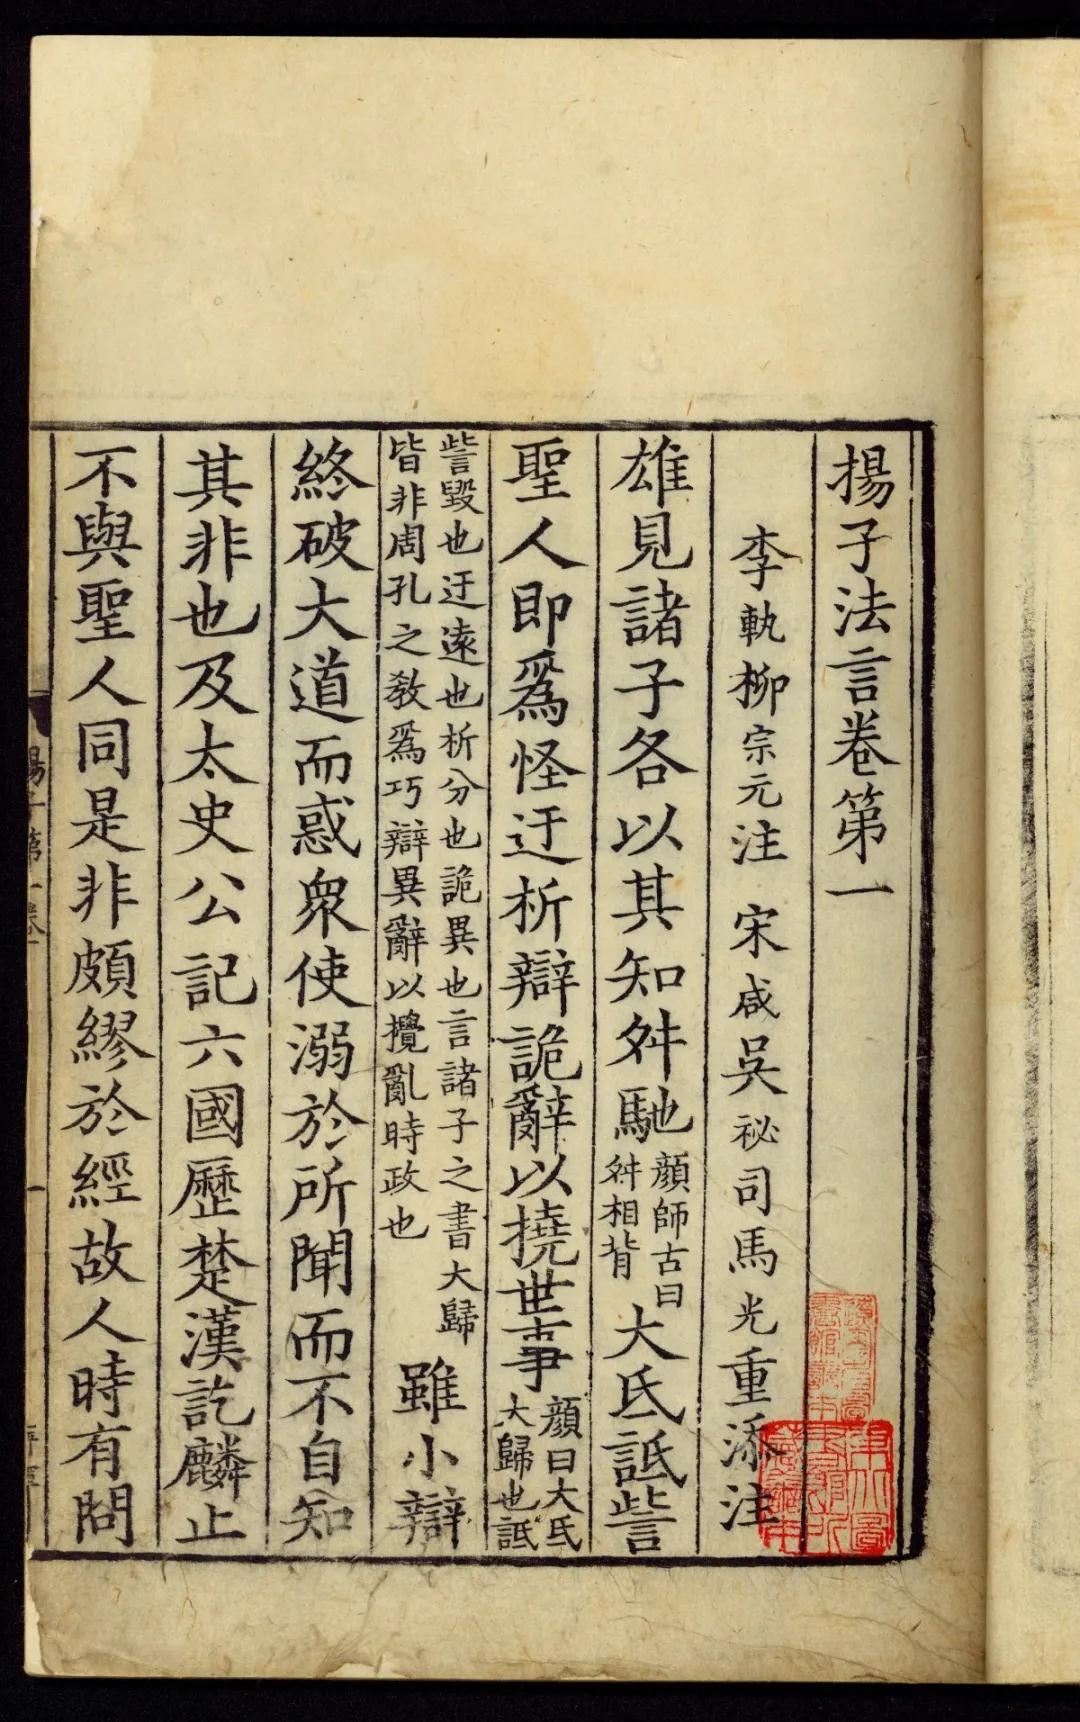 揚子法言卷第一
李軌柳宗元注 宋咸吳祕司馬光重添注
雄見諸子各以其知舛馳顏師古曰舛相背大氐詆訾
聖人即爲怪迂析辯詭辭以撓世事顏曰大氐大歸也詆
訾毀也迂遠也析分也詭異也言諸子之書大歸皆非周孔之教爲巧辯異辭以攪亂時政也雖小辯
終破大道而惑衆使溺於所聞而不自知
其非也及太史公記六國歷楚漢訖麟止
不與聖人同是非頗繆於經故人時有問